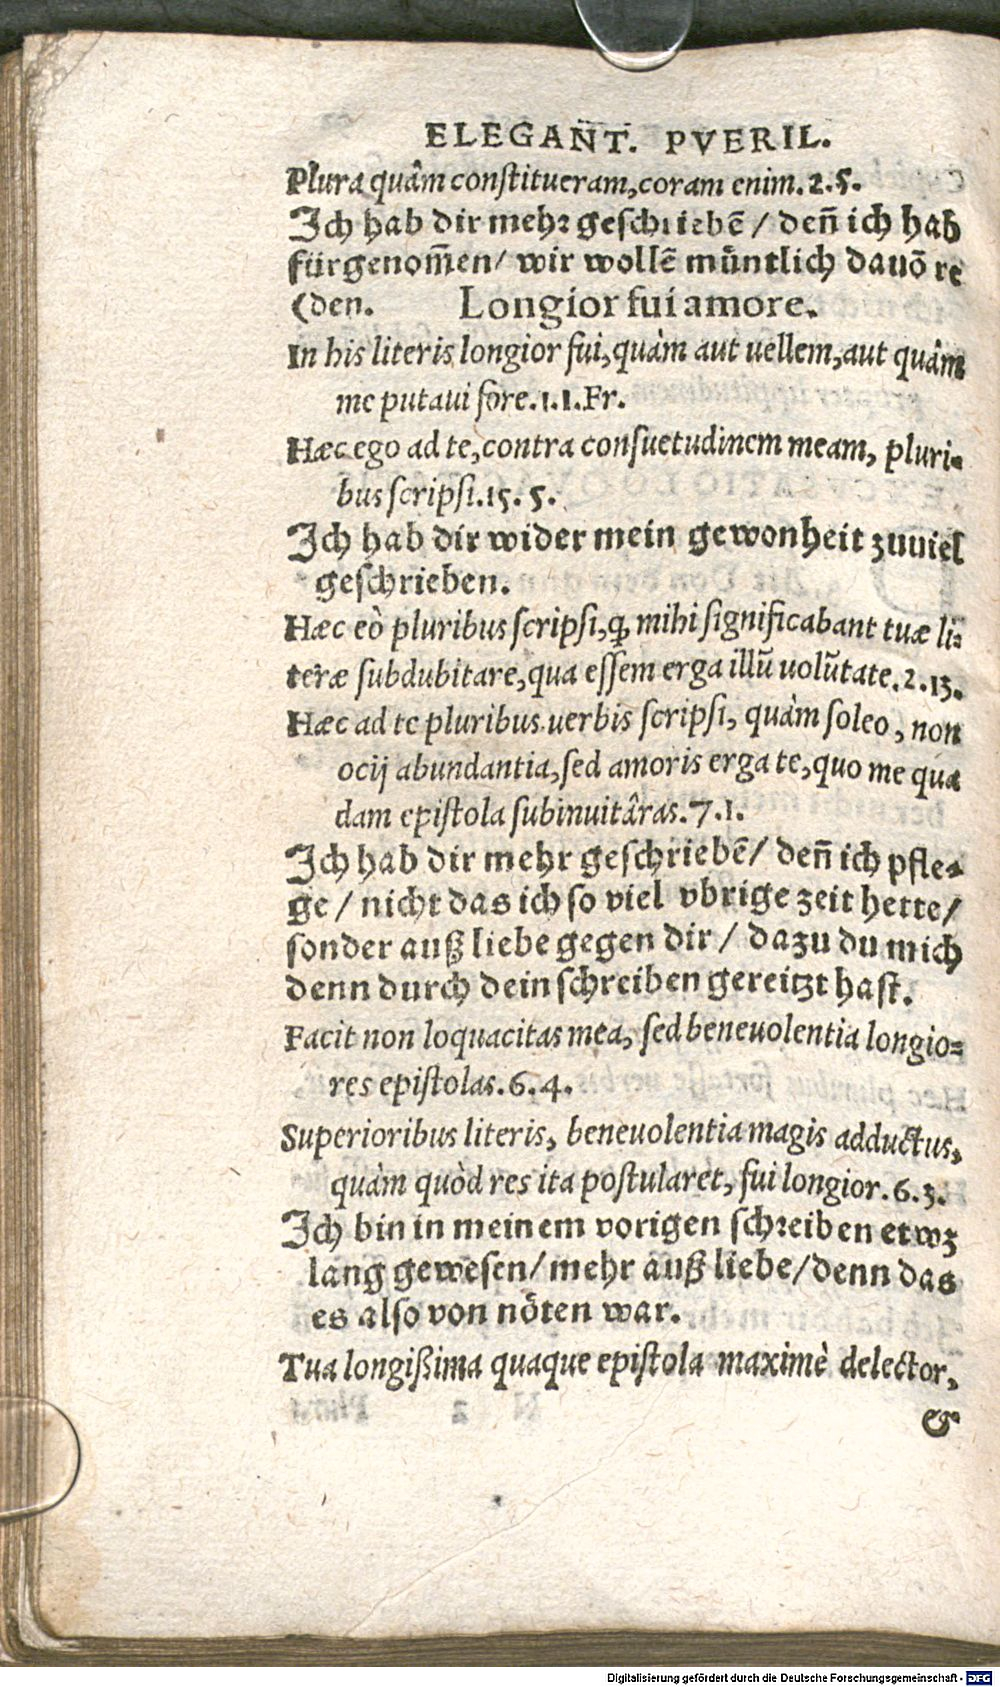 ELEGANT. PVERIL.
Plura quâm constitueram, coram enim. 2. 5.
Ich hab dir mehr geschriebē / deñ ich hab
fürgenom̄en / wir wollē müntlich dauō re
(den. Longior fui amore.
In his literis longior fui, quàm aut uellem, aut quâm
me putaui fore. 1. 1. Fr.
Hæc ego ad te, contra consuetudinem meam, pluri-
bus scripsi. 15. 5.
Ich hab dir wider mein gewonheit zuuiel
geschrieben.
Hæc eò pluribus scripsi, ꝙ mihi significabant tuæ li-
teræ subdubitare, qua essem erga illū uolūtate. 2. 13.
Hæc ad te pluribus uerbis scripsi, quàm soleo, non
ocij abundantia, sed amoris erga te, quo me qua
dam epistola subinuitâras. 7. 1.
Ich hab dir mehr geschriebē / deñ ich pfle-
ge / nicht das ich so viel vbrige zeit hette /
sonder auß liebe gegen dir / dazu du mich
denn durch dein schreiben gereitzt hast.
Facit non loquacitas mea, sed beneuolentia longio-
res epistolas. 6. 4.
Superioribus literis, beneuolentia magis adductus,
quàm quòd res ita postularet, fui longior. 6. 3.
Ich bin in meinem vorigen schreiben etwz
lang gewesen / mehr auß liebe / denn das
es also von nöten war.
Tua longißima quaque epistola maximè delector,
&
Digitalisierung gefördert durch die Deutsche Forschungsgemeinschaft - DFG